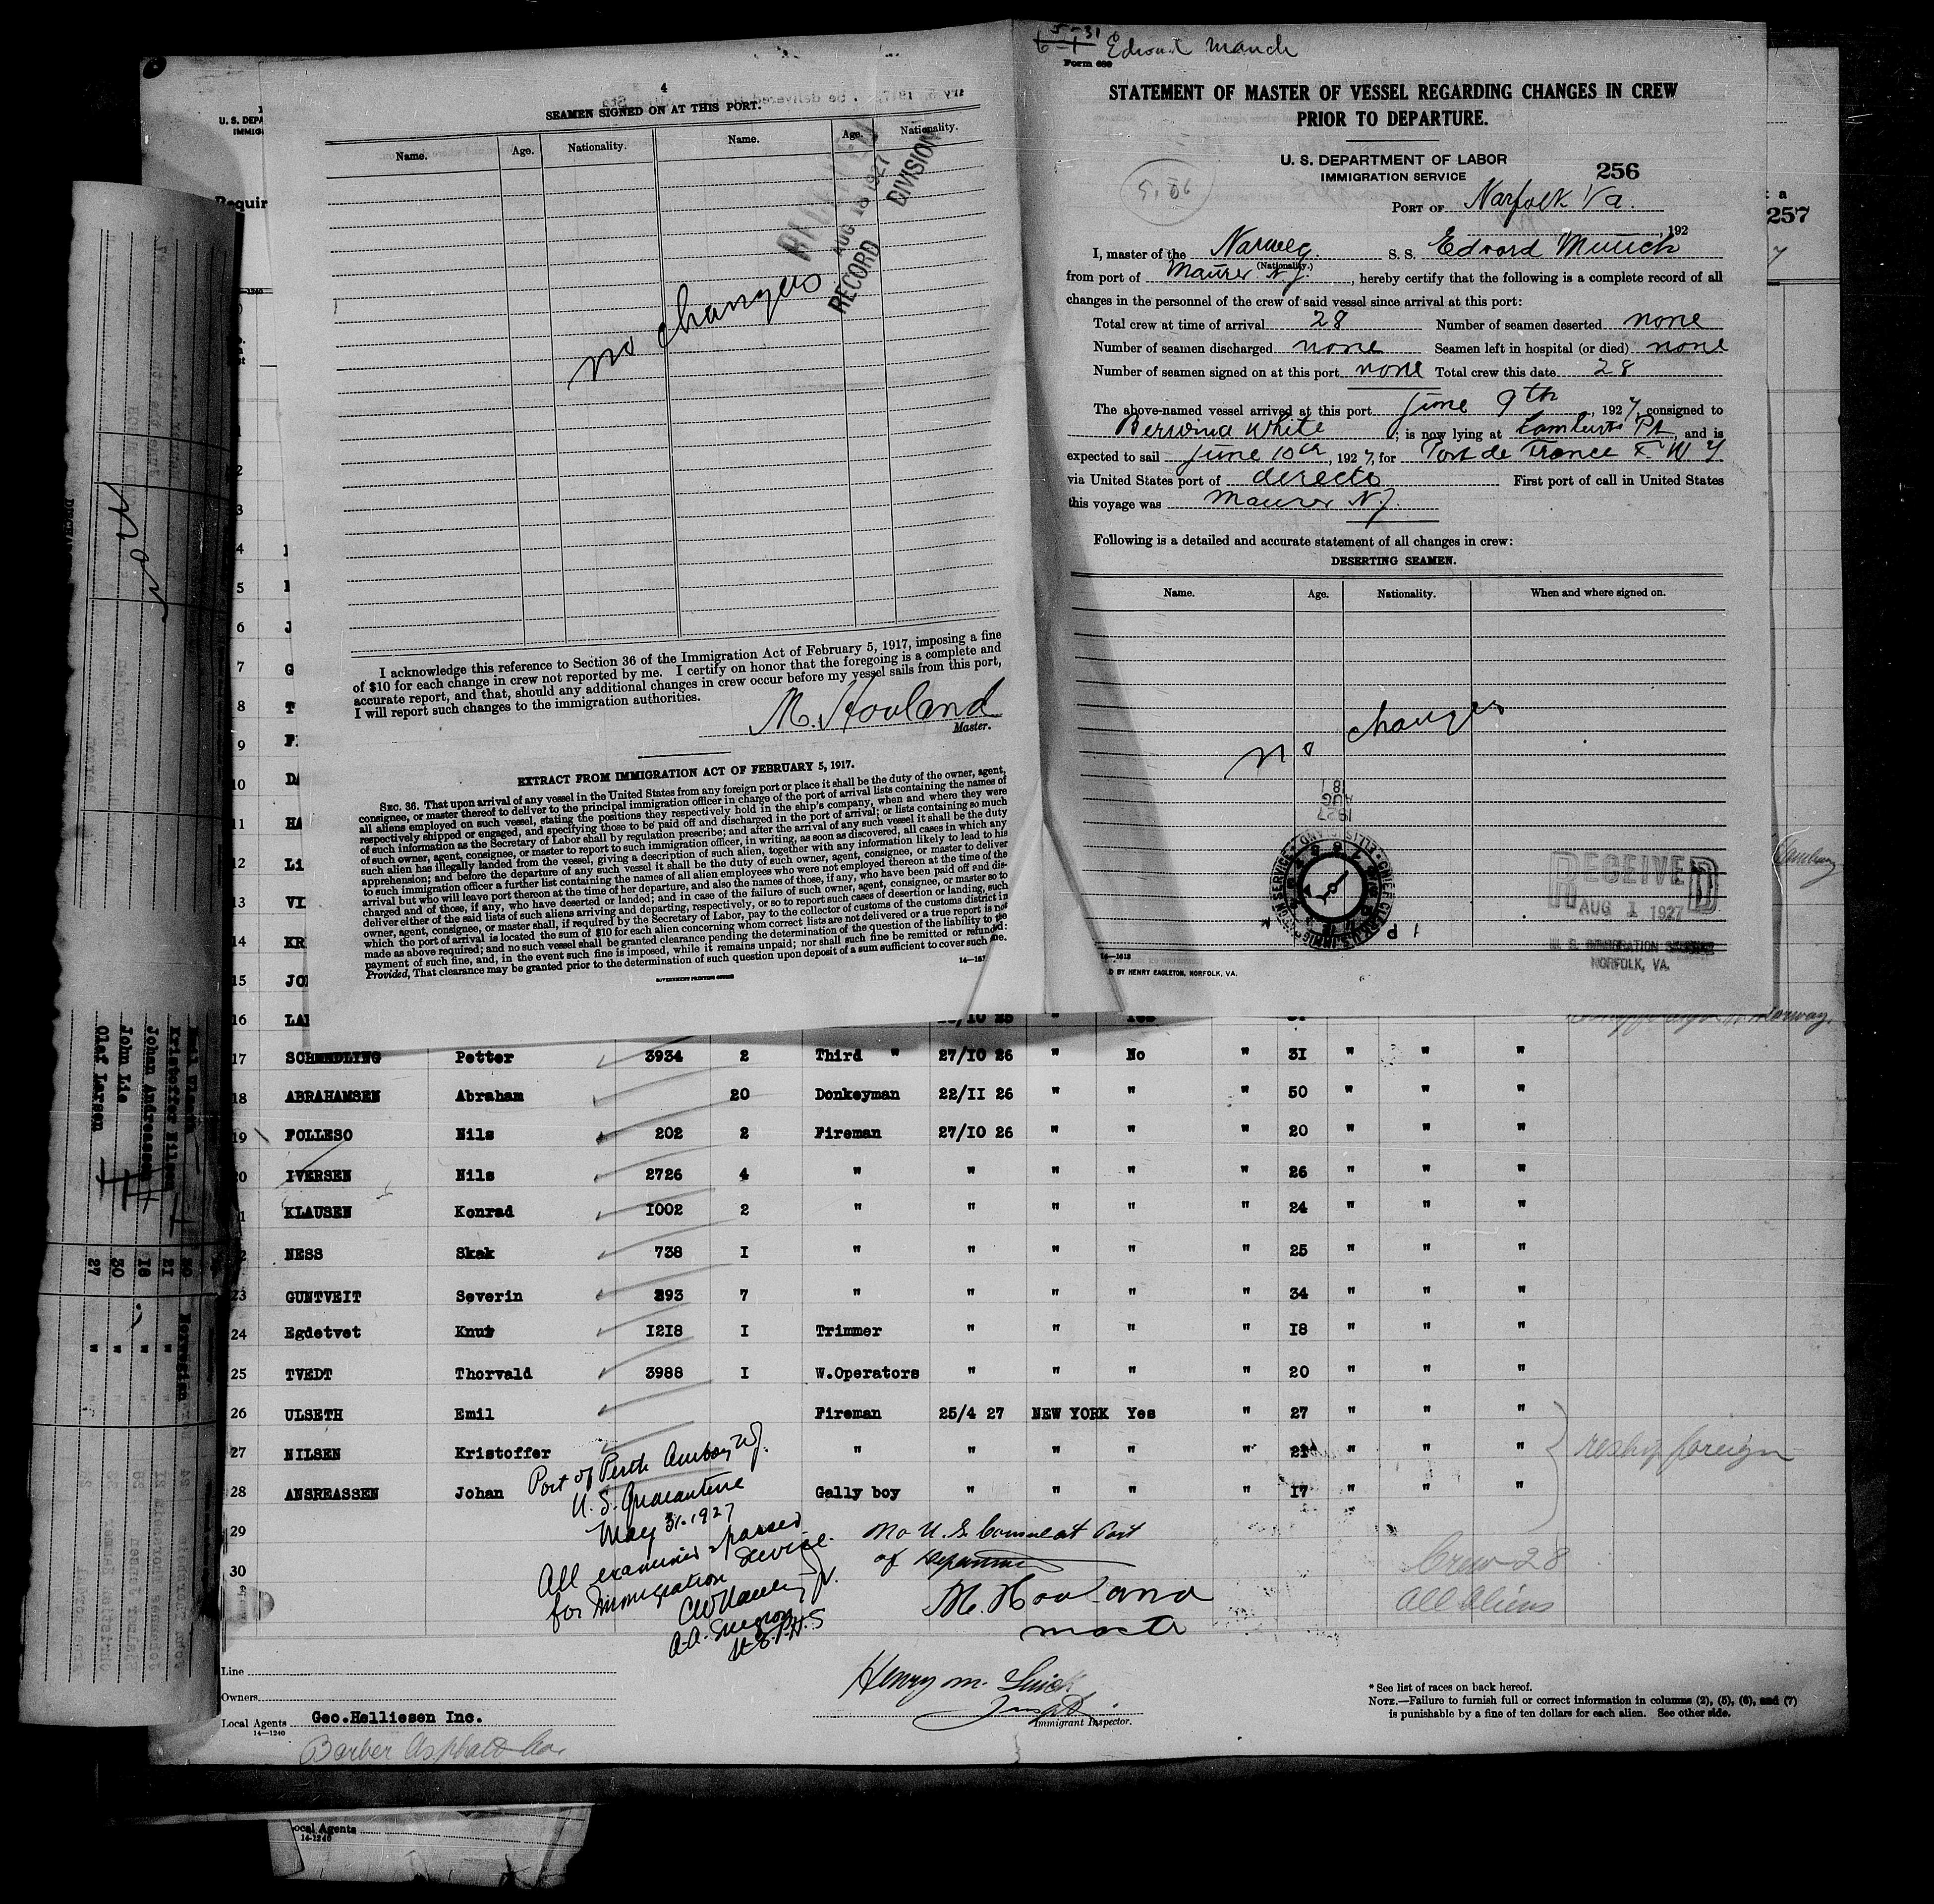 4
SEAMEN SIGNED ON AT THIS PORT.
Name. Age. Nationality. Name. Age. Nationality.
AUG 18 1927
RECORD DIVISION
no changes
I acknowledge this reference to Section 36 of the Immigration Act of February 5, 1917, imposing a fine
of $10 for each change in crew not reported by me. I certify on honor that the foregoing is a complete and
accurate report, and that, should any additional changes in crew occur before my vessel sails from this port,
I will report such changes to the immigration authorities.
M. Hovland
Master.
EXTRACT FROM IMMIGRATION ACT OF FEBRUARY 5, 1917.
SEC. 36. That upon arrival of any vessel in the United States from any foreign port or place it shall be the duty of the owner, agent,
consignee, or master thereof to deliver to the principal immigration officer in charge of the port of arrival lists containing the names of
all aliens employed on such vessel, stating the positions they respectively hold in the ship's company, when and where they were
respectively shipped or engaged, and specifying those to be paid off and discharged in the port of arrival; or lists containing so much
of such information as the Secretary of Labor shall by regulation prescribe; and after the arrival of any such vessel it shall be the duty
of such owner, agent, consignee, or master to report to such immigration officer, in writing, as soon as discovered, all cases in which any
such alien has illegally landed from the vessel, giving a description of such alien, together with any information likely to lead to his
apprehension; and before the departure of any such vessel it shall be the duty of such owner, agent, consignee, or master to deliver
to such immigration officer a further list containing the names of all alien employees who were not employed thereon at the time of the
arrival but who will leave port thereon at the time of her departure, and also the names of those, if any, who have been paid off and dis-
charged and of those, if any, who have deserted or landed; and in case of the failure of such owner, agent, consignee, or master so to
deliver either of the said lists of such aliens arriving and departing, respectively, or so to report such cases of desertion or landing, such
owner, agent, consignee, or master shall, if required by the Secretary of Labor, pay to the collector of customs of the customs district in
which the port of arrival is located the sum of $10 for each alien concerning whom correct lists are not delivered or a true report is not
made as above required; and no such vessel shall be granted clearance pending the determination of the question of the liability to the
payment of such fine, and, in the event such fine is imposed, while it remains unpaid; nor shall such fine be remitted or refunded:
Provided, That clearance may be granted prior to the determination of such question upon deposit of a sum sufficient to cover such fine.
GOVERNMENT PRINTING OFFICE
5-31
6-1
Form 689
STATEMENT OF MASTER OF VESSEL REGARDING CHANGES IN CREW
PRIOR TO DEPARTURE.
U. S. DEPARTMENT OF LABOR
IMMIGRATION SERVICE
256
PORT OF Norfolk Va.
, 192
I, master of the Norweg. S. S. Edvard Munch
(Nationality.)
from port of Maurer N.J. , hereby certify that the following is a complete record of all
changes in the personnel of the crew of said vessel since arrival at this port:
Total crew at time of arrival 28 Number of seamen deserted none
Number of seamen discharged none Seamen left in hospital (or died) none
Number of seamen signed on at this port none Total crew this date 28
The above-named vessel arrived at this port June 9th , 1927, consigned to
Berwind White ; is now lying at Lamberts Pt, and is
expected to sail June 10th, 1927, for Fort de France F W I
via United States port of directo First port of call in United States
this voyage was Maurer N.J.
Following is a detailed and accurate statement of all changes in crew:
DESERTING SEAMEN.
Name. Age. Nationality. When and where signed on.
no changes
RECEIVED
AUG 1 1927
NORFOLK, VA.
D BY HENRY EAGLETON, NORFOLK, VA.
257
17 SCHMEDLING Petter 3934 2 Third " 27/10 26 " No " 31 " " "
18 ABRAHAMSEN Abraham 20 Donkeyman 22/11 26 " " " 50 " " "
19 FOLLESO Nils 202 2 Fireman 27/10 26 " " " 20 " " "
20 IVERSEN Nils 2726 4 " " " " " 26 " " "
21 KLAUSEN Konrad 1002 2 " " " " " 24 " " "
22 NESS Skak 738 I " " " " " 25 " " "
23 GUNTVEIT Severin 893 7 " " " " " 34 " " "
24 Egdetvet Knut 1218 I Trimmer " " " " 18 " " "
25 TVEDT Thorvald 3988 I W.Operators " " " " 20 " " "
26 ULSETH Emil Fireman 25/4 27 NEW YORK Yes " 27 " " "
27 NILSEN Kristoffer " " " " " 21 " " " reship foreign
28 ANSREASSEN Johan Gally boy " " " " 17 " " "
29
30
Port of Perth Amboy N.J.
U. S. Quarantine
May 31-1927
All examined & passed
for Immigration Service.
A.A. Surgeon
U.S.P.H.S
No U.S. Consul at Port
of Departure
M. Hovland
master
Crew 28
All Aliens
Line
Owners
Local Agents Geo.Helliesen Inc.
14-1240
Barber Asphalt Co.
Henry M.
Immigrant Inspector.
* See list of races on back hereof.
NOTE.—Failure to furnish full or correct information in columns (2), (5), (6), and (7)
is punishable by a fine of ten dollars for each alien. See other side.
Local Agents
14-1240
Kristoffer Nilsen 21
Johan Andreassen 18
John Lie 20
Olef Larsen 27